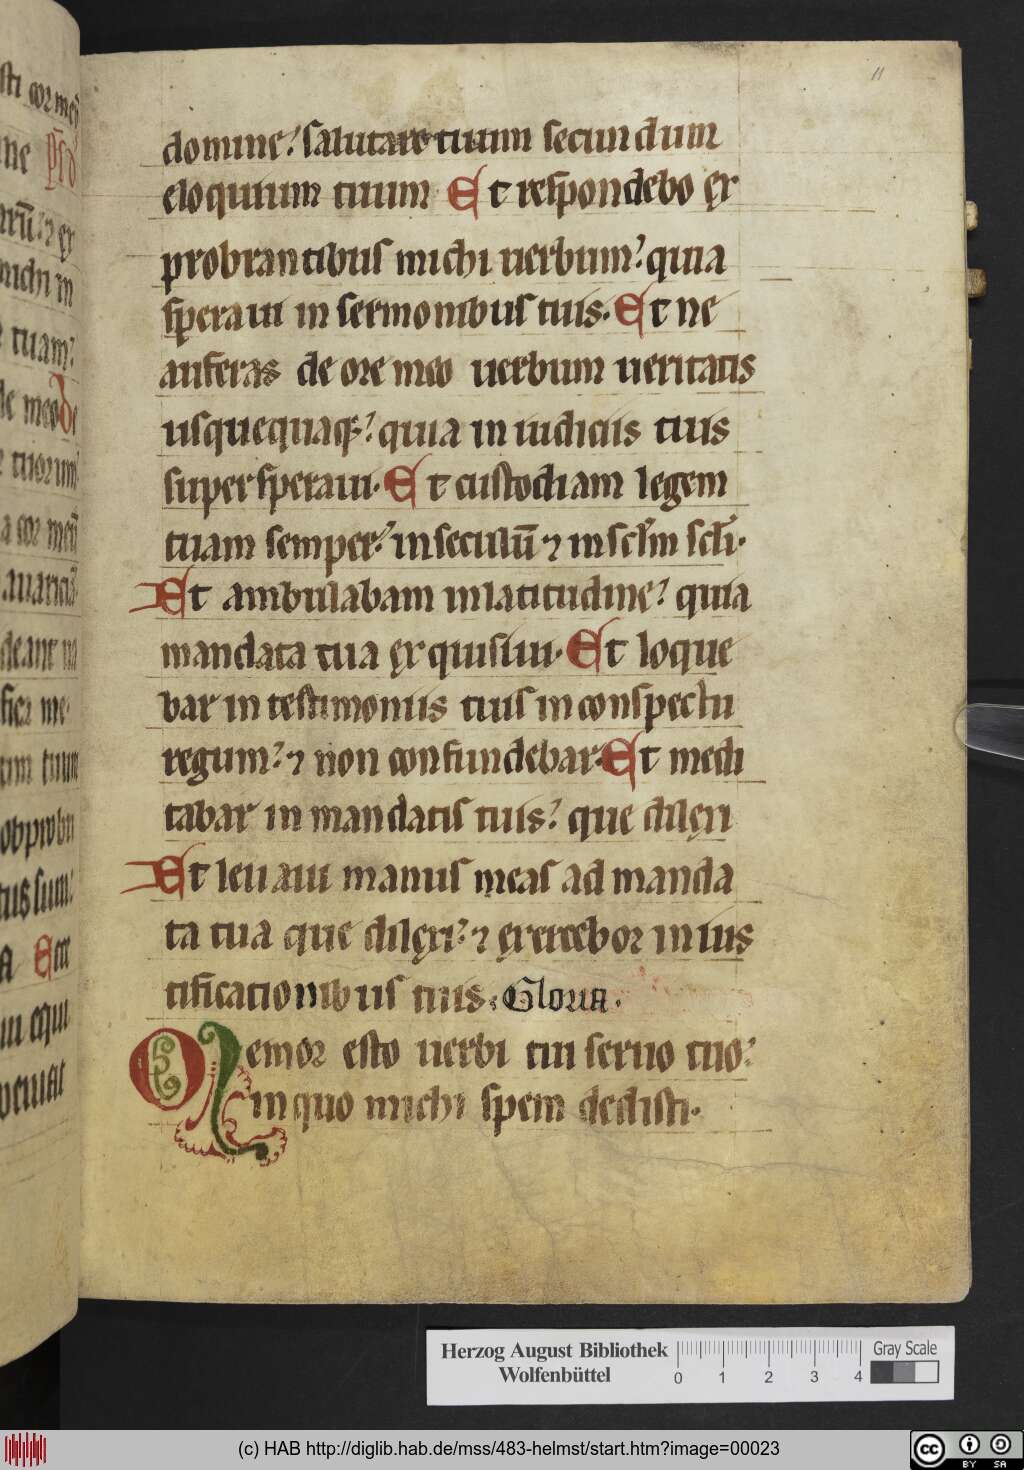 11
domine? salutare tuum secundum
eloquium tuum Et respondebo ex
probrantibus michi uerbum? quia
speraui in sermonibus tuis. Et ne
auferas de ore meo uerbum ueritatis
usquequaq;? quia in iudiciis tuis
supersperaui. Et custodiam legem
tuam semper? in seculū ⁊ in sc̄lm sc̄li.
Et ambulabam in latitudine? quia
mandata tua exquisiui. Et loque
bar in testimoniis tuis in conspectu
regum? ⁊ non confundebar. Et medi
tabar in mandatis tuis? que dilexi
Et leuaui manus meas ad manda
ta tua que dilexi? ⁊ exercebor in ius
tificationibus tuis. Gloria.
Memor esto uerbi tui seruo tuo?
in quo michi spem dedisti.
Herzog August Bibliothek
Wolfenbüttel
0 1 2 3 4
Gray Scale
(c) HAB http://diglib.hab.de/mss/483-helmst/start.htm?image=00023
cc BY SA